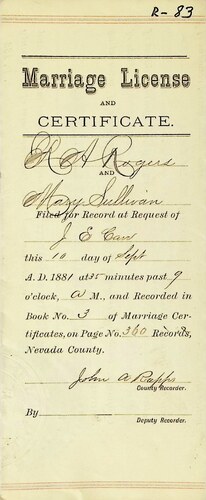 R-83
Marriage License
AND
CERTIFICATE.
R A Rogers
AND
Mary Sullivan
Filed for Record at Request of
J E Carr
this 10 day of Sept
A. D. 1881 at 35 minutes past 9
o'clock, A M., and Recorded in
Book No. 3 of Marriage Cer-
tificates, on Page No. 360 Records,
Nevada County.
John A Rapp
County Recorder.
By
Deputy Recorder.